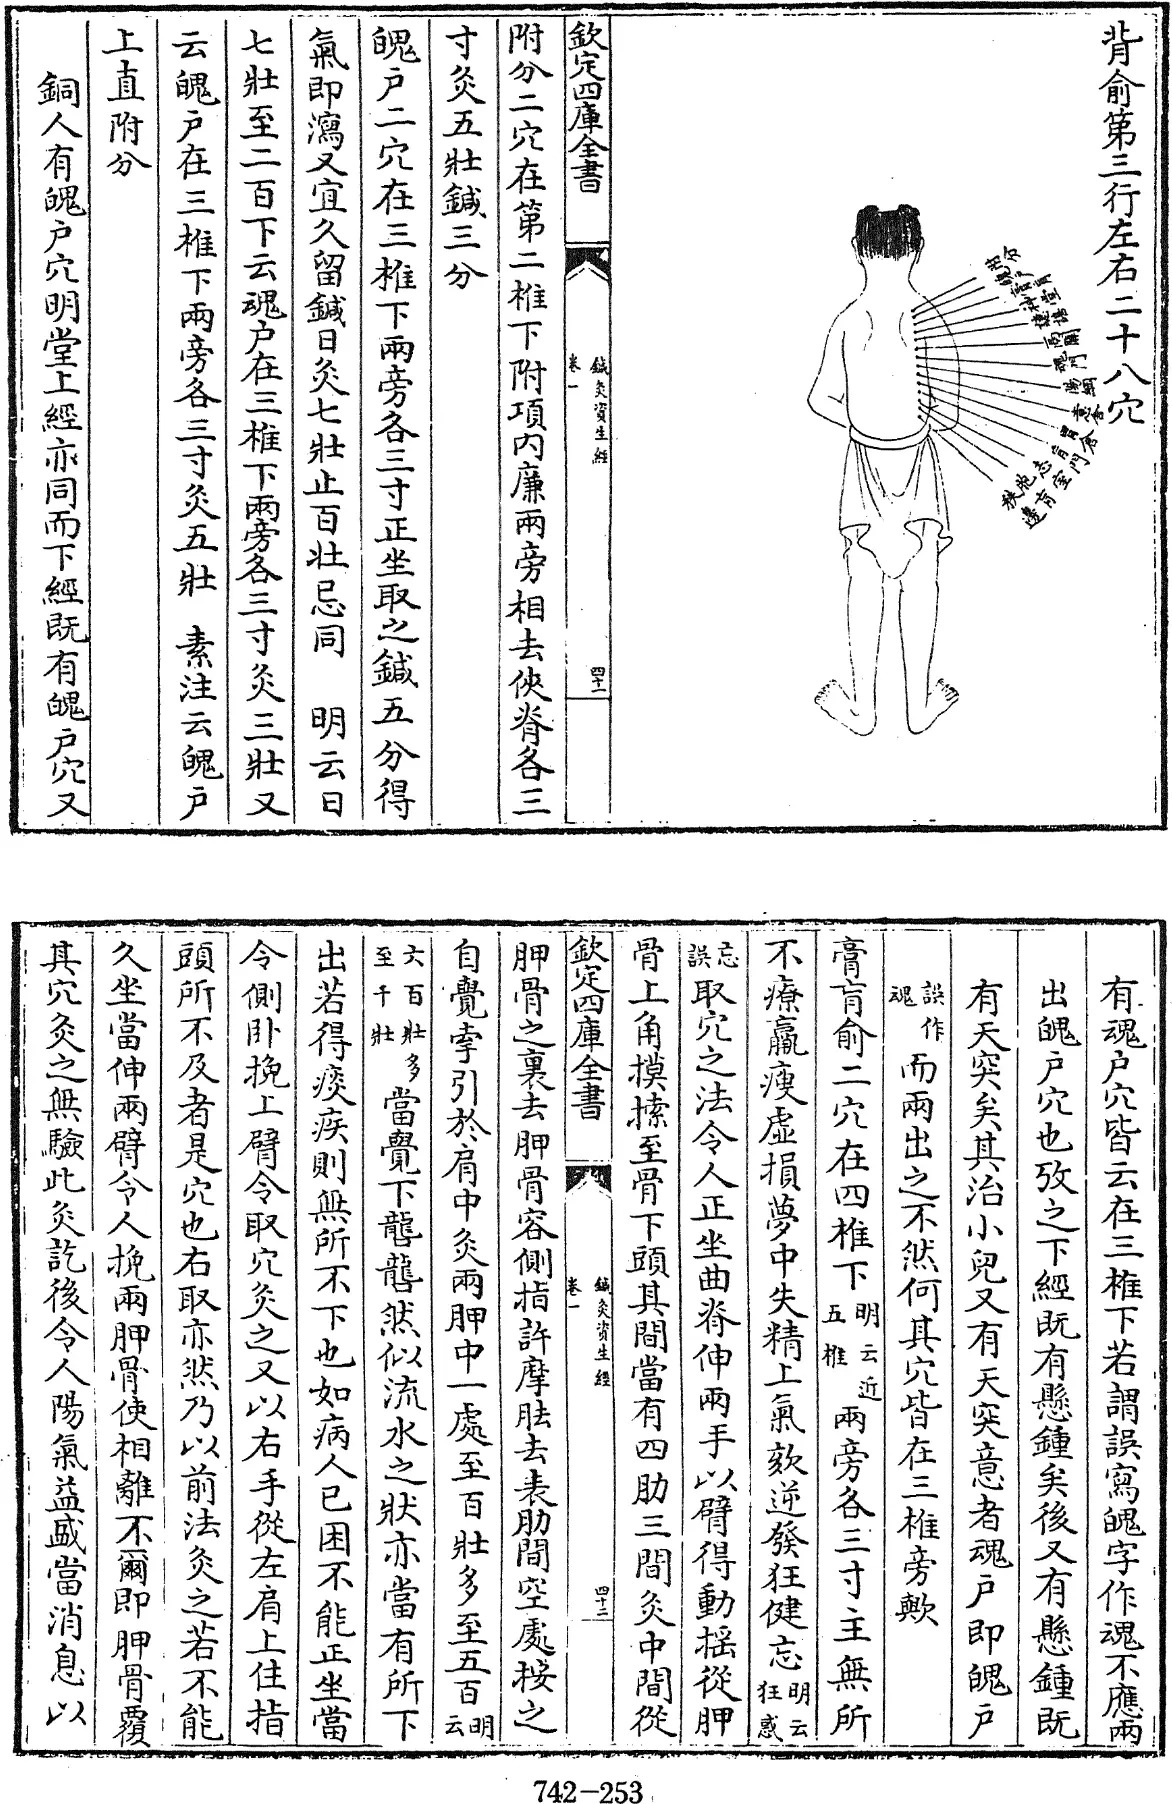 背俞第三行左右二十八穴
附分
魄户
膏肓
神堂
譩譆
膈關
魂門
陽綱
意舍
胃倉
肓門
志室
胞肓
秩邊
欽定四庫全書
鍼灸資生經
卷一
四十二
附分二穴在第二椎下附項内廉兩旁相去俠脊各三
寸灸五壯鍼三分
魄户二穴在三椎下兩旁各三寸正坐取之鍼五分得
氣即瀉又宜久留鍼日灸七壯止百壯忌同 明云日
七壯至二百下云魂户在三椎下兩旁各三寸灸三壯又
云魄户在三椎下兩旁各三寸灸五壯 素注云魄户
上直附分
銅人有魄户穴明堂上經亦同而下經既有魄户穴又
有魂户穴皆云在三椎下若謂誤寫魄字作魂不應兩
出魄户穴也攷之下經既有懸鍾矣後又有懸鍾既
有天突矣其治小兒又有天突意者魂户即魄户
誤作魂而兩出之不然何其穴皆在三椎旁歟
膏肓俞二穴在四椎下明云近五椎兩旁各三寸主無所
不療羸瘦虛損夢中失精上氣欬逆發狂健忘明云狂惑
忘誤取穴之法令人正坐曲脊伸兩手以臂得動揺從胛
骨上角摸㩡至骨下頭其間當有四肋三間灸中間從
欽定四庫全書
鍼灸資生經
卷一
四十三
胛骨之裏去胛骨容側指許摩胠去表肋間空處按之
自覺牽引於肩中灸兩胛中一處至百壯多至五百明云
六百壯多至千壯當覺下礲礲然似流水之狀亦當有所下
出若得痰疾則無所不下也如病人已困不能正坐當
令側卧挽上臂令取穴灸之又以右手從左肩上住指
頭所不及者是穴也右取亦然乃以前法灸之若不能
久坐當伸兩臂令人挽兩胛骨使相離不爾即胛骨覆
其穴灸之無驗此灸訖後令人陽氣益盛當消息以
742-253